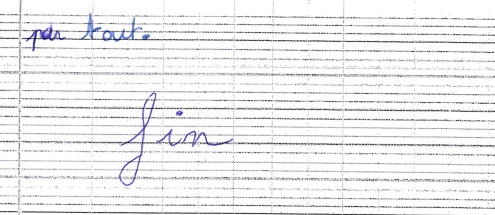 par tout.
fin